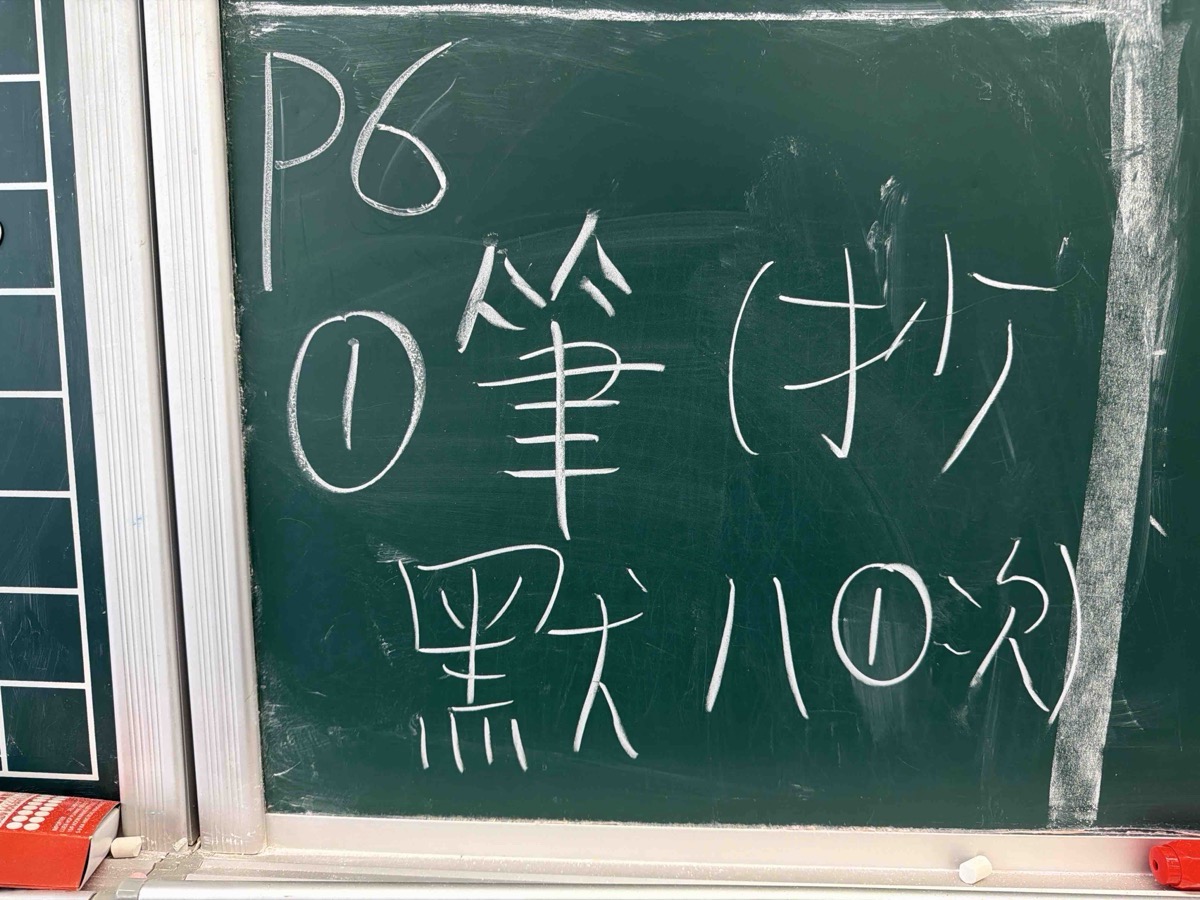 P6
①筆(抄
默八①次)